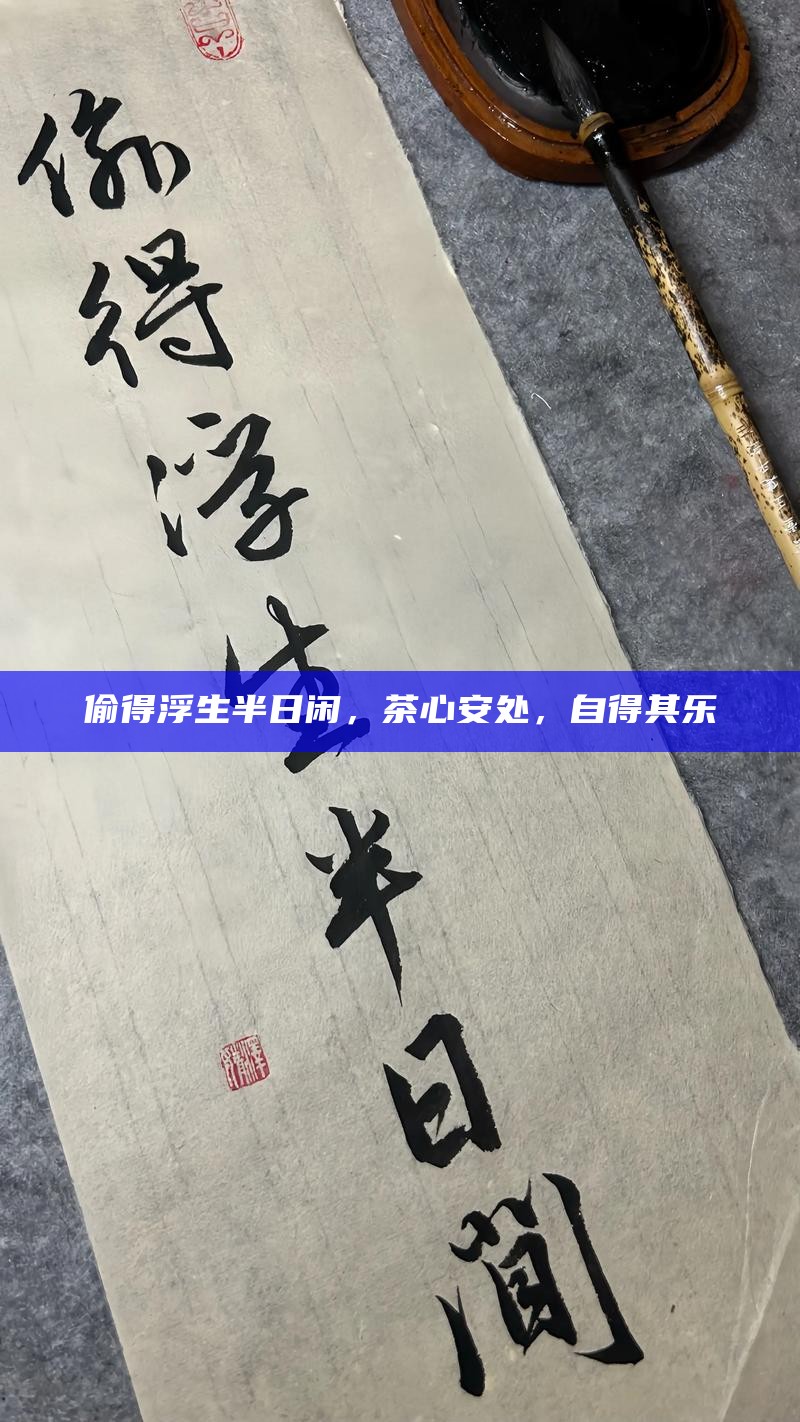 偷得浮生半日閒
偷得浮生半日闲，茶心安处，自得其乐